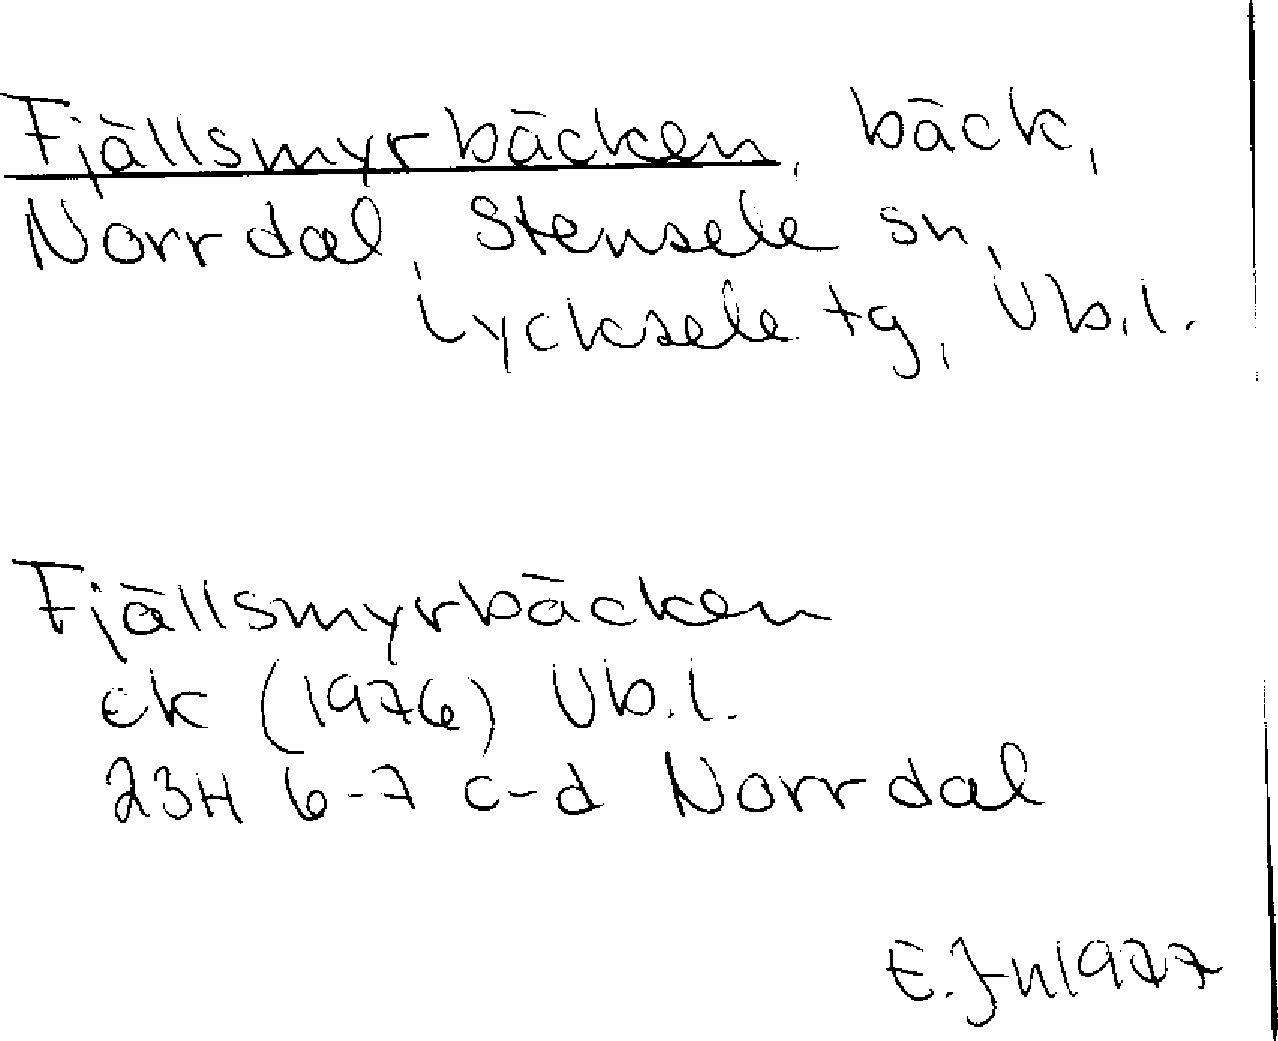 Fjällsmyrbäcken, bäck,
Norrdal, Stensele sn,
Lycksele tg, Vb.l.
Fjällsmyrbäcken
ek (1976) Vb.l.
23H 6-7 c-d Norrdal
E.Jn 1977